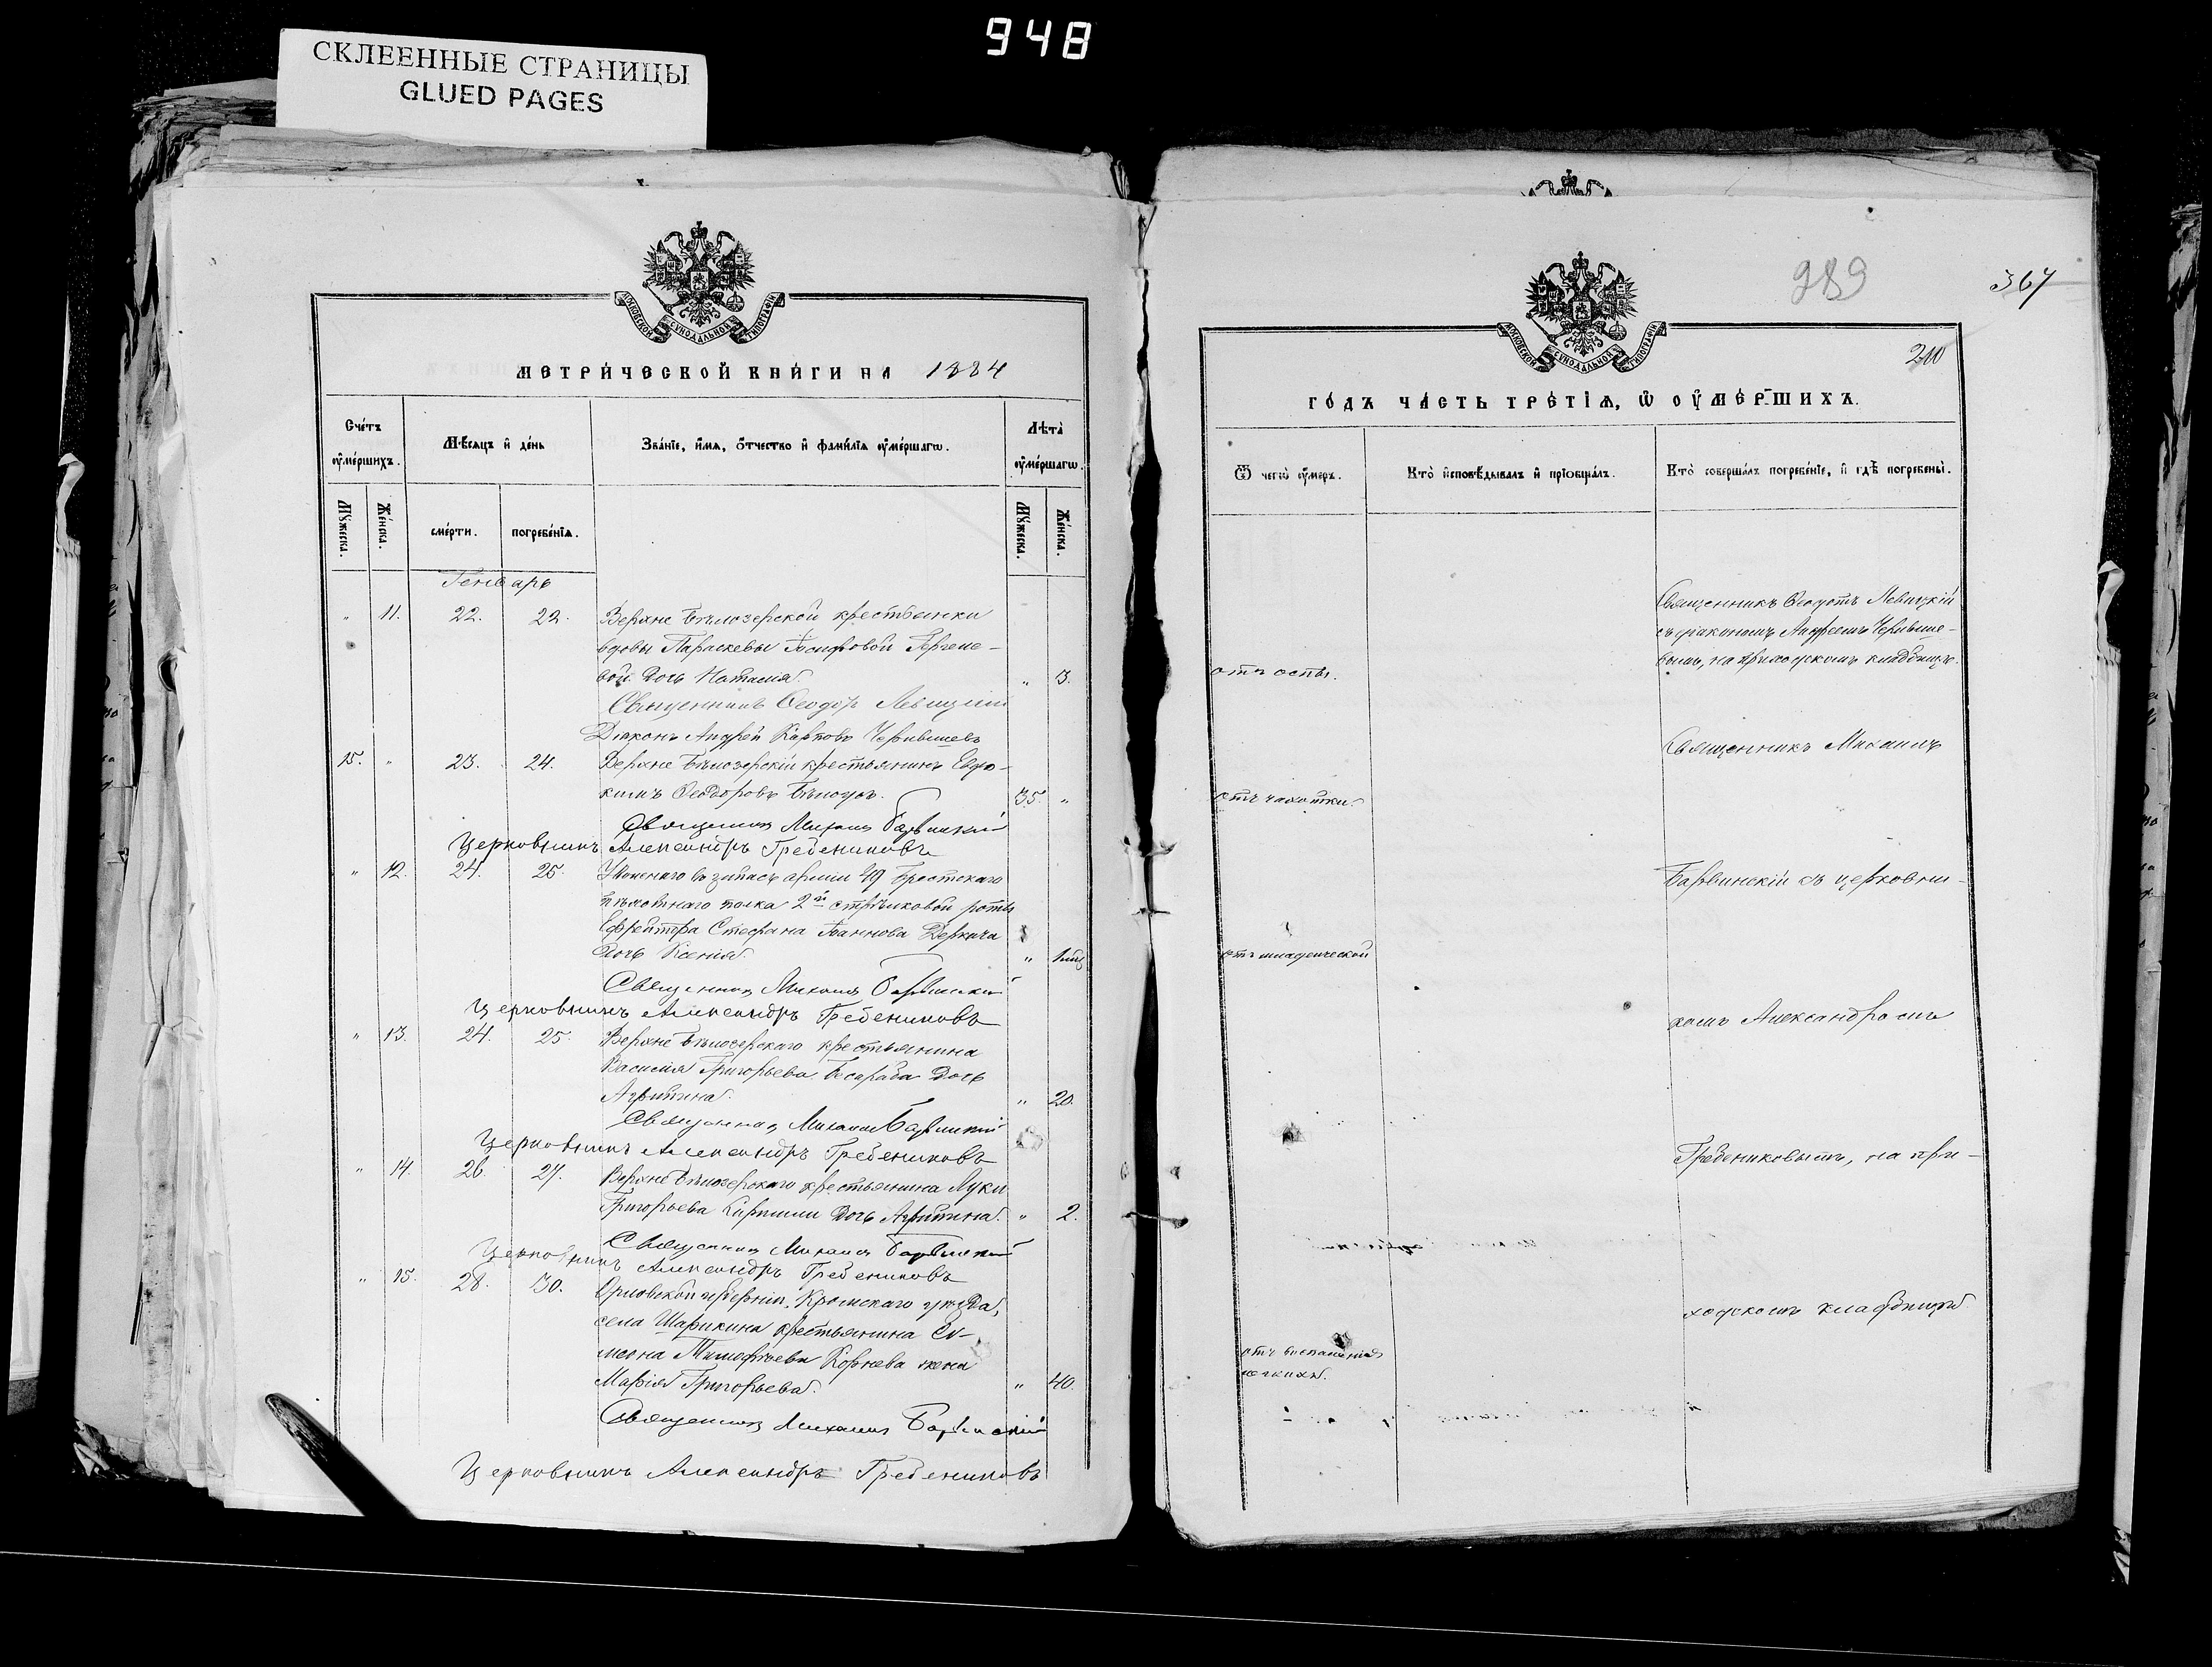 948
СКЛЕЕННЫЕ СТРАНИЦЫ
GLUED PAGES
МОСКОВСКОЙ СѴНОДАЛЬНОЙ ТИПОГРАФІИ
МЕТРИ́ЧЕСКОЙ КНИ́ГИ НА 1884
Сче́тъ ᲂу҆ме́ршихъ.
Мѣ́сяцъ и҆ де́нь
Зва́нїе, и҆́мѧ, ѻ҆́тчество и҆ фами́лїѧ ᲂу҆ме́ршагѡ.
Лѣта̀ ᲂу҆ме́ршагѡ.
Мꙋ́жеска.
Же́нска.
сме́рти.
погребе́нїѧ.
Мꙋ́жеска.
Же́нска.
Генварь
" 11. 22. 22. Верхне Бѣлозерской крестьянки
вдовы Параскевы Іосифовой
вой дочь Наталія " 3.
Священникъ Ѳеодоръ Левицкій
Діаконъ Андрей Карповъ Чернышевъ
15. " 23. 24. Верхне Бѣлозерскій крестьянинъ Евдо-
кимъ Ѳеодоровъ Бѣлоусъ. 35. "
Священникъ Михаилъ Барвинскій
Церковникъ Александръ Гребениковъ
" 12. 24. 25. Уволеннаго въ запасъ арміи 49 Брестскаго
пѣхотнаго полка 2й стрѣлковой роты
Ефрейтора Стефана Іоаннова Деркача
дочь Ксенія. " 1 мц
Священникъ Михаилъ Барвинскій
Церковникъ Александръ Гребениковъ
" 13. 24. 25. Верхне Бѣлозерскаго крестьянина
Василія Григорьева Бесараба дочь
Агрипина. " 20.
Священникъ Михаилъ Барвинскій
Церковникъ Александръ Гребениковъ
" 14. 26. 27. Верхне Бѣлозерскаго крестьянина Луки
Григорьева дочь Агрипина. " 2.
Священникъ Михаилъ Барвинскій
Церковникъ Александръ Гребениковъ
" 15. 28. 30. Орловской губерніи, Кромскаго уѣзда,
села Шарикина крестьянина Си-
меона Тимофѣева Корнева жена
Марія Григорьева. " 40.
Священникъ Михаилъ Барвинскій
Церковникъ Александръ Гребениковъ
989
367
210
МОСКОВСКОЙ СѴНОДАЛЬНОЙ ТИПОГРАФІИ
ГО́ДЪ ЧА́СТЬ ТРЕ́ТІѦ, Ѡ҆ ОУ҆МЕ́РШИХЪ.
Ѿ чегѡ̀ ᲂу҆́меръ.
Кто̀ и҆сповѣ́дывалъ и҆ прїѡбща́лъ.
Кто̀ соверша́лъ погребе́нїе, и҆ гдѣ̀ погребены̀.
Священникъ Ѳеодотъ Левицкій
съ діакономъ Андреемъ Черныше-
вымъ, на приходскомъ кладбищѣ.
отъ оспы.
Священникъ Михаилъ
отъ чахотки.
Барвинскій съ церковни-
отъ младенческой
комъ Александромъ
Гребениковымъ, на при-
ходскомъ кладбищѣ
отъ воспаленія
легкихъ.